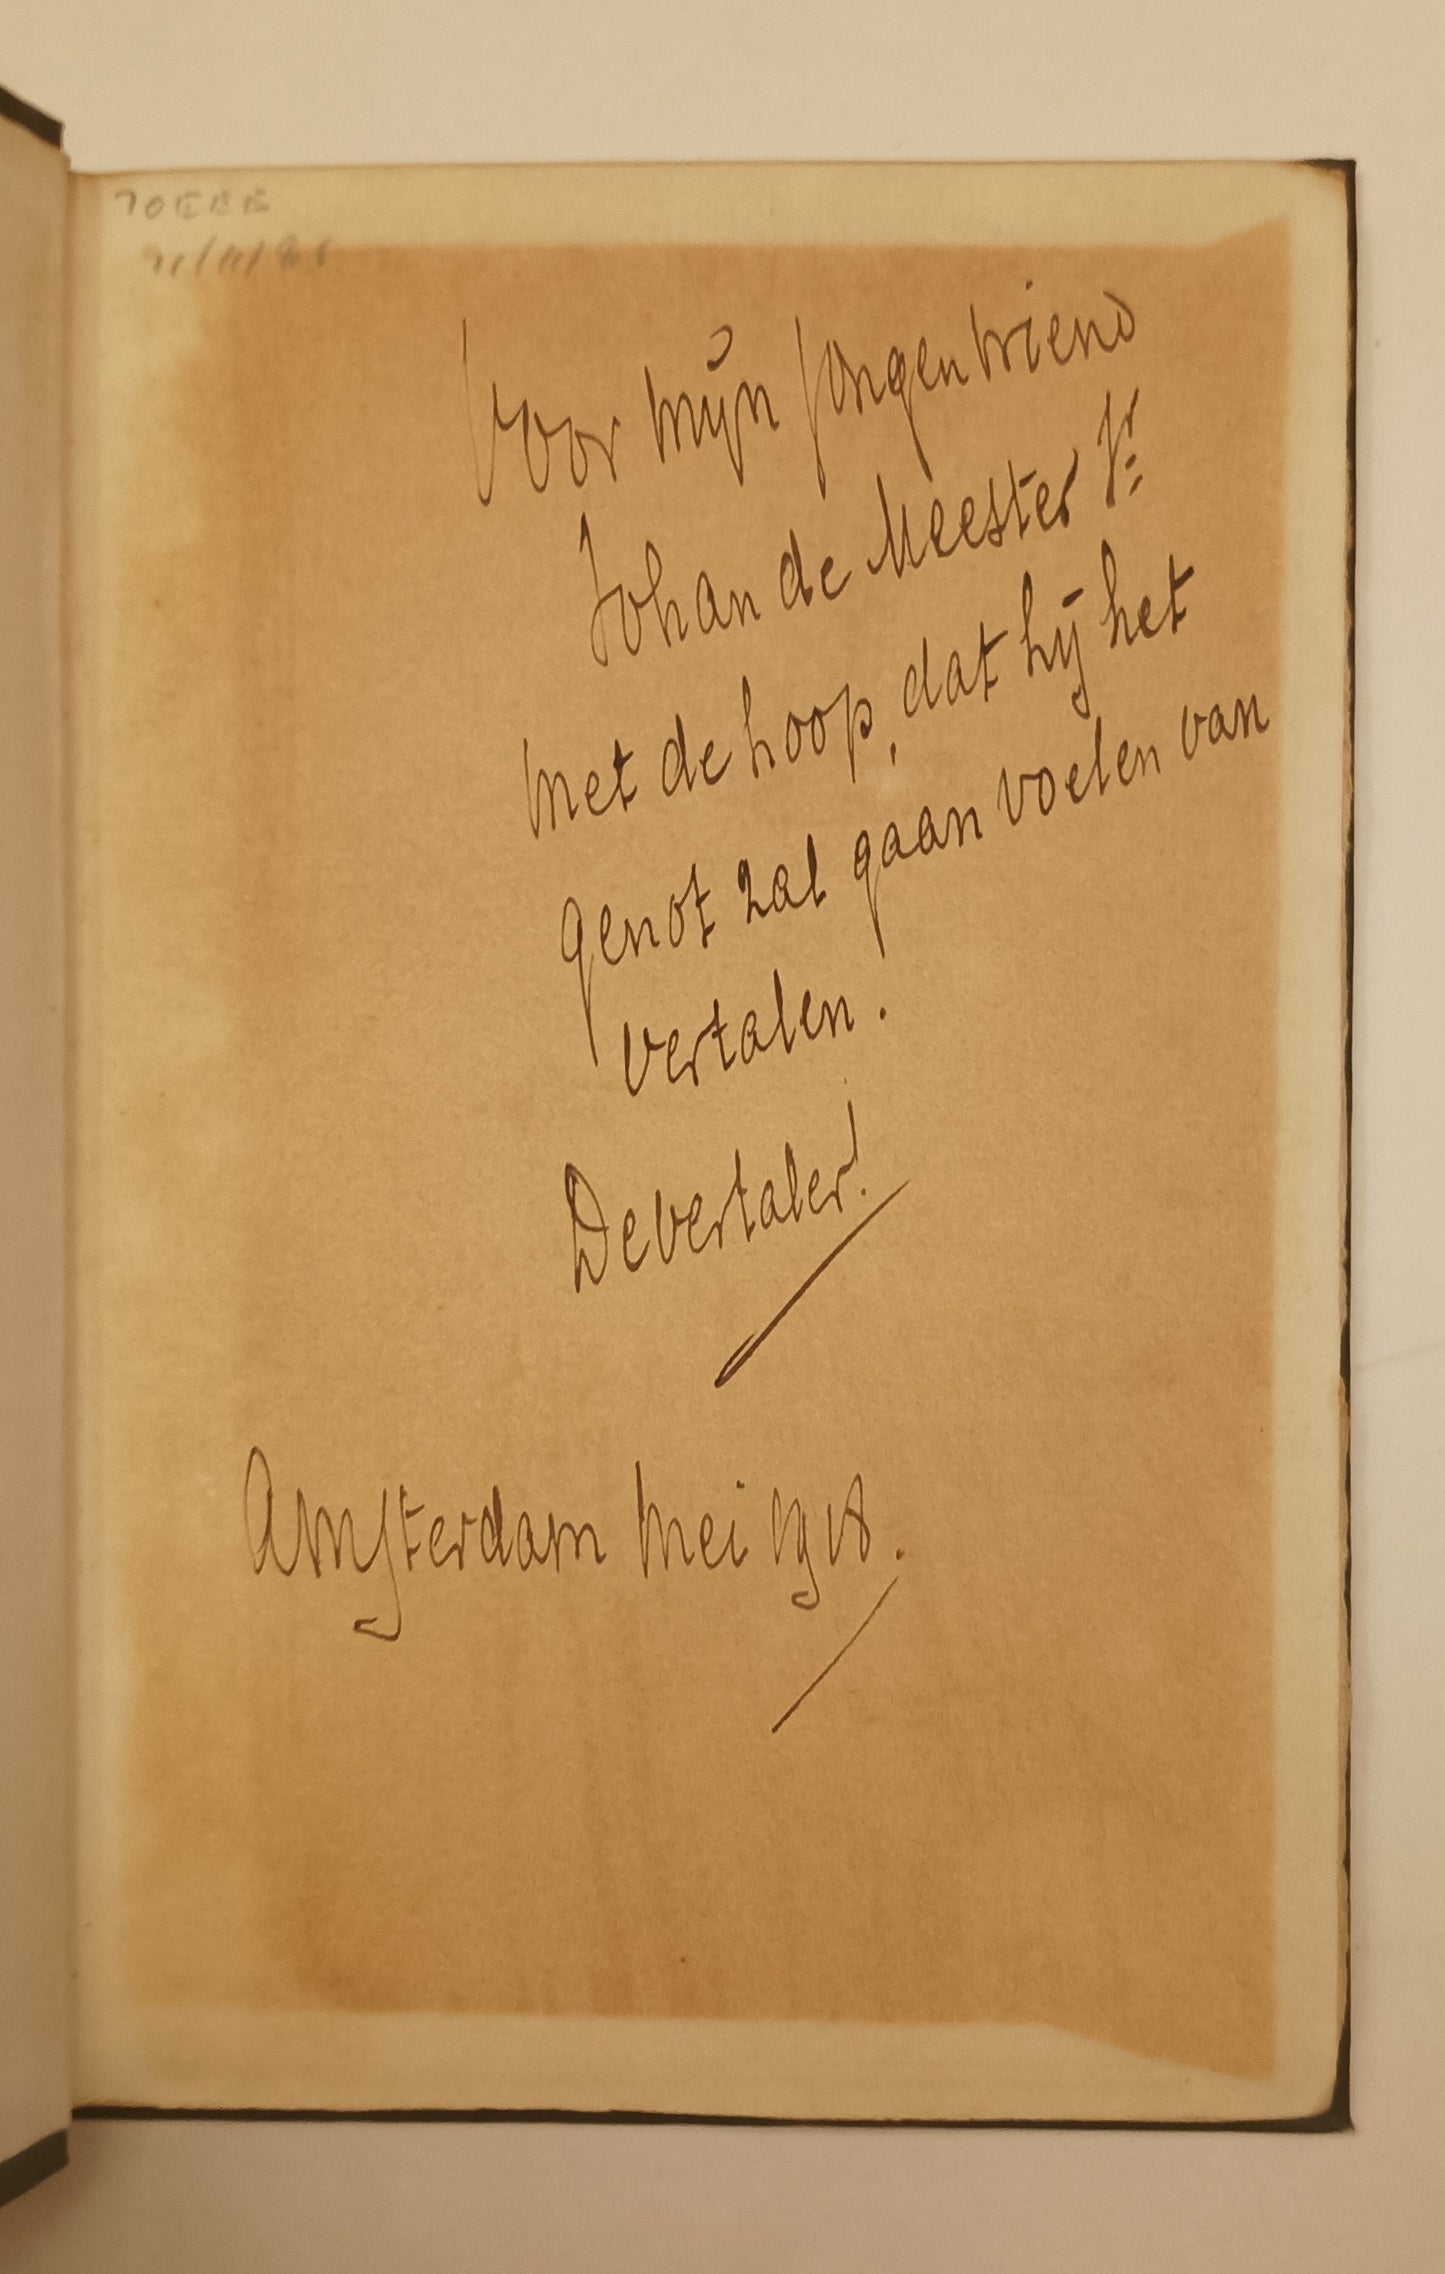 Voor mijn jongen vriend
Johan de Meester Jr
met de hoop, dat hij het
genot zal gaan voelen van
vertalen.
De vertaler!
Amsterdam Mei 1918.